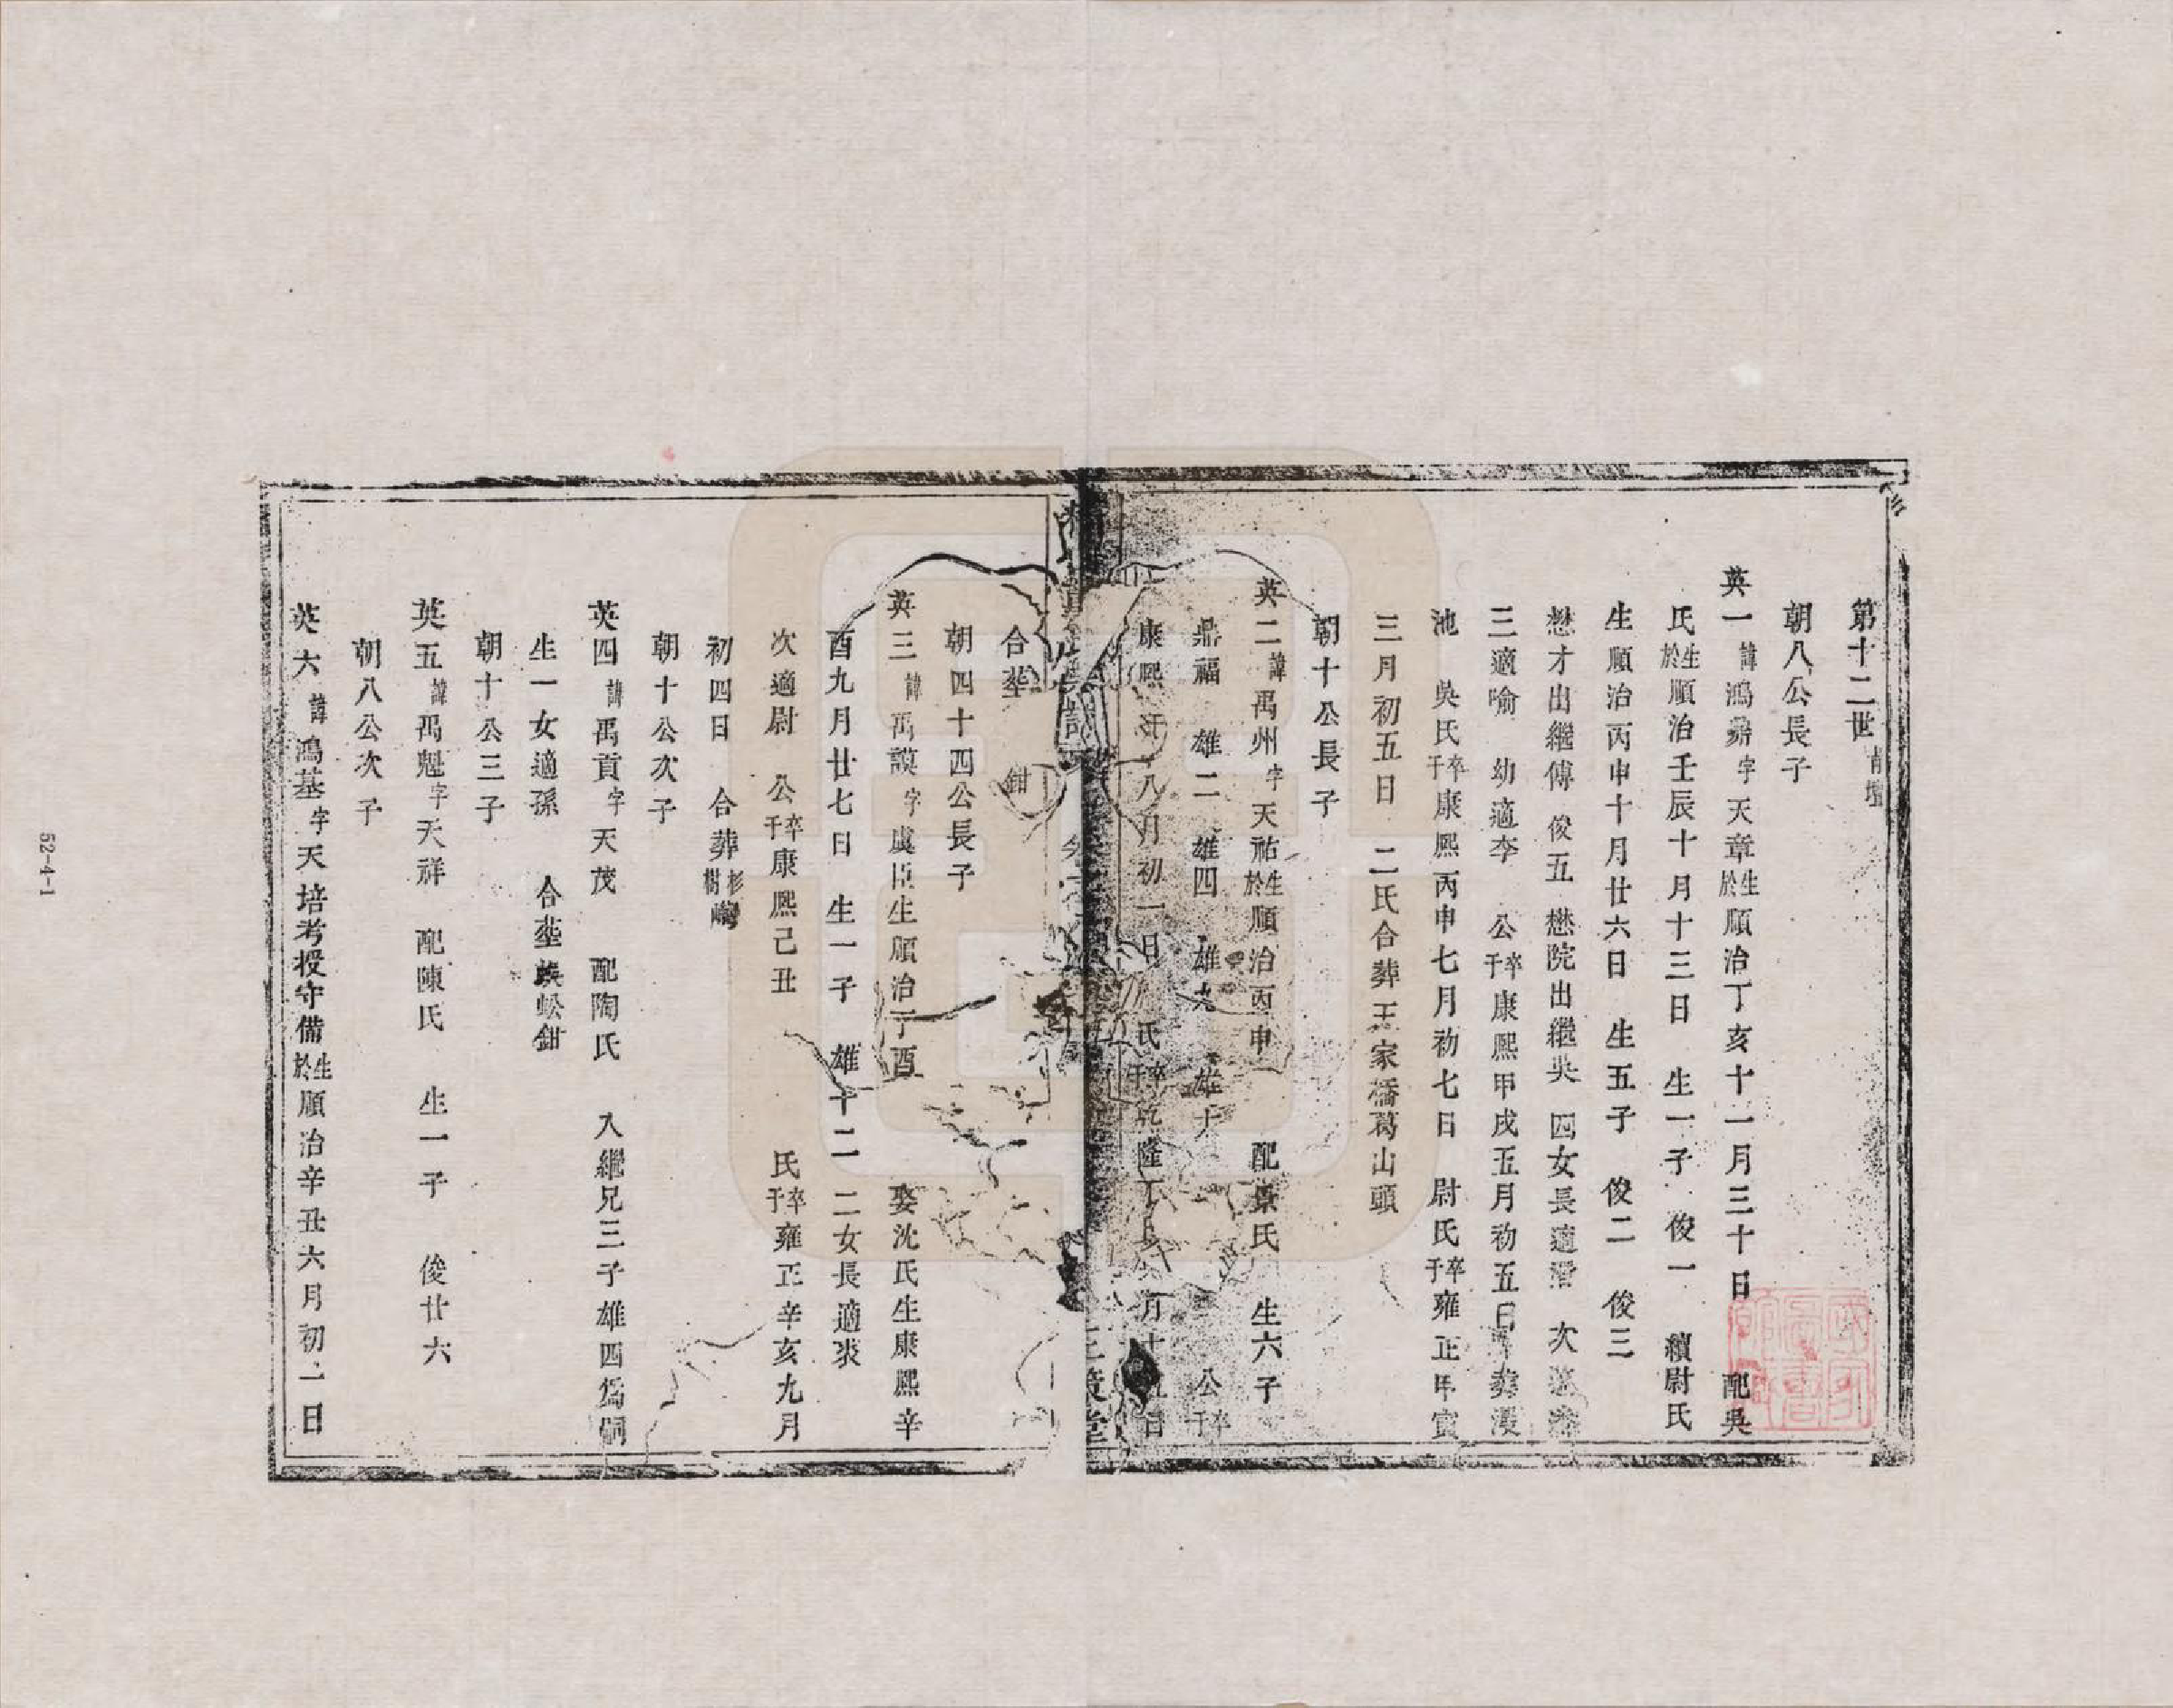 第十二世
朝八公長子
英一諱鴻鼐字天章生於順治丁亥十一月三十日 配吳
氏生於順治壬辰十月十三日 生一子 俊一 續尉氏
生順治丙申十月廿六日 生五子 俊二 俊三
懋才出繼傅 俊五 懋院出繼吳 四女長適潘 次適
三適喻 幼適李 公卒于康熙甲戌五月初五日
池 吳氏卒于康熙丙申七月初七日 尉氏卒于雍正甲寅
三月初五日 二氏合葬王家橋葛山頭
朝十公長子
英二諱禹州字天祐生於順治丙申 配景氏 生六子
鼎福 雄二 雄四 雄九 雄十 公卒于
康熙 八月初一日 氏卒于乾隆丁 月十 日
合塟 鉗
朝四十四公長子
英三諱禹謨字虞臣生順治丁酉 娶沈氏生康熙辛
酉九月廿七日 生一子 雄十二 二女長適裘
次適尉 公卒于康熙己丑 氏卒于雍正辛亥九月
初四日 合葬杉樹
朝十公次子
英四諱禹貢字天茂 配陶氏 入繼兄三子雄四爲嗣
生一女適孫 合塟蜈蚣鉗
朝十公三子
英五諱禹魁字天祥 配陳氏 生一子 俊廿六
朝八公次子
英六諱鴻基字天培考授守備生於順治辛丑六月初二日
52-4-1